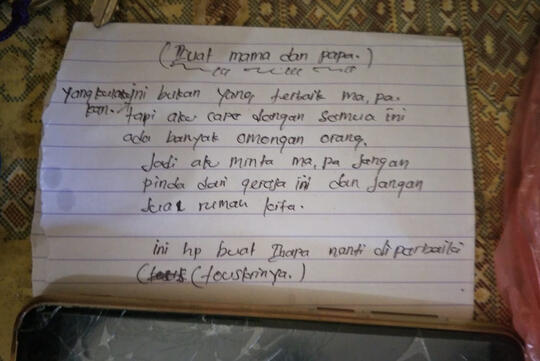 (Buat mama dan papa.)
yang kulakukan ini bukan yang terbaik ma, pa.
tapi aku cape dengan semua ini
ada banyak omongan orang.
Jadi ak minta ma, pa Jangan
pinda dari gereja ini dan Jangan
Jual rumah kita.
ini hp buat Bapa nanti di parbaiki
(touskrinya.)